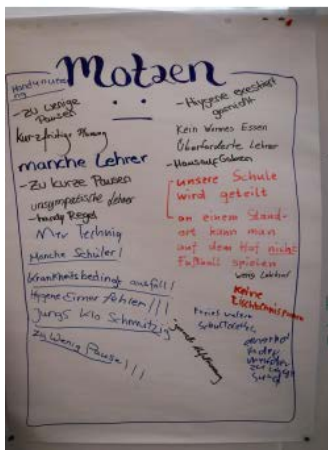 Motzen
Handynutzung
- zu wenige
Pausen
kurzfristige Planung
manche Lehrer
- Zu kurze Pausen
unsympatische Lehrer
- handy Regel
Mehr Technig
Manche Schüler!
krankheitsbedingt ausfall!
Hygene Eimer fehlen!!!
Jungs Klo Schmutzig
zu wenig Pause!!!
- Hygene
garnicht
Kein Warmes Essen
Überforderte Lehrer
- Hausaufgaben
unsere Schule
wird geteilt
an einem Stand-
ort kann man
auf dem Hof nicht
Fußball spielen
wenig Lehrer!
Keine